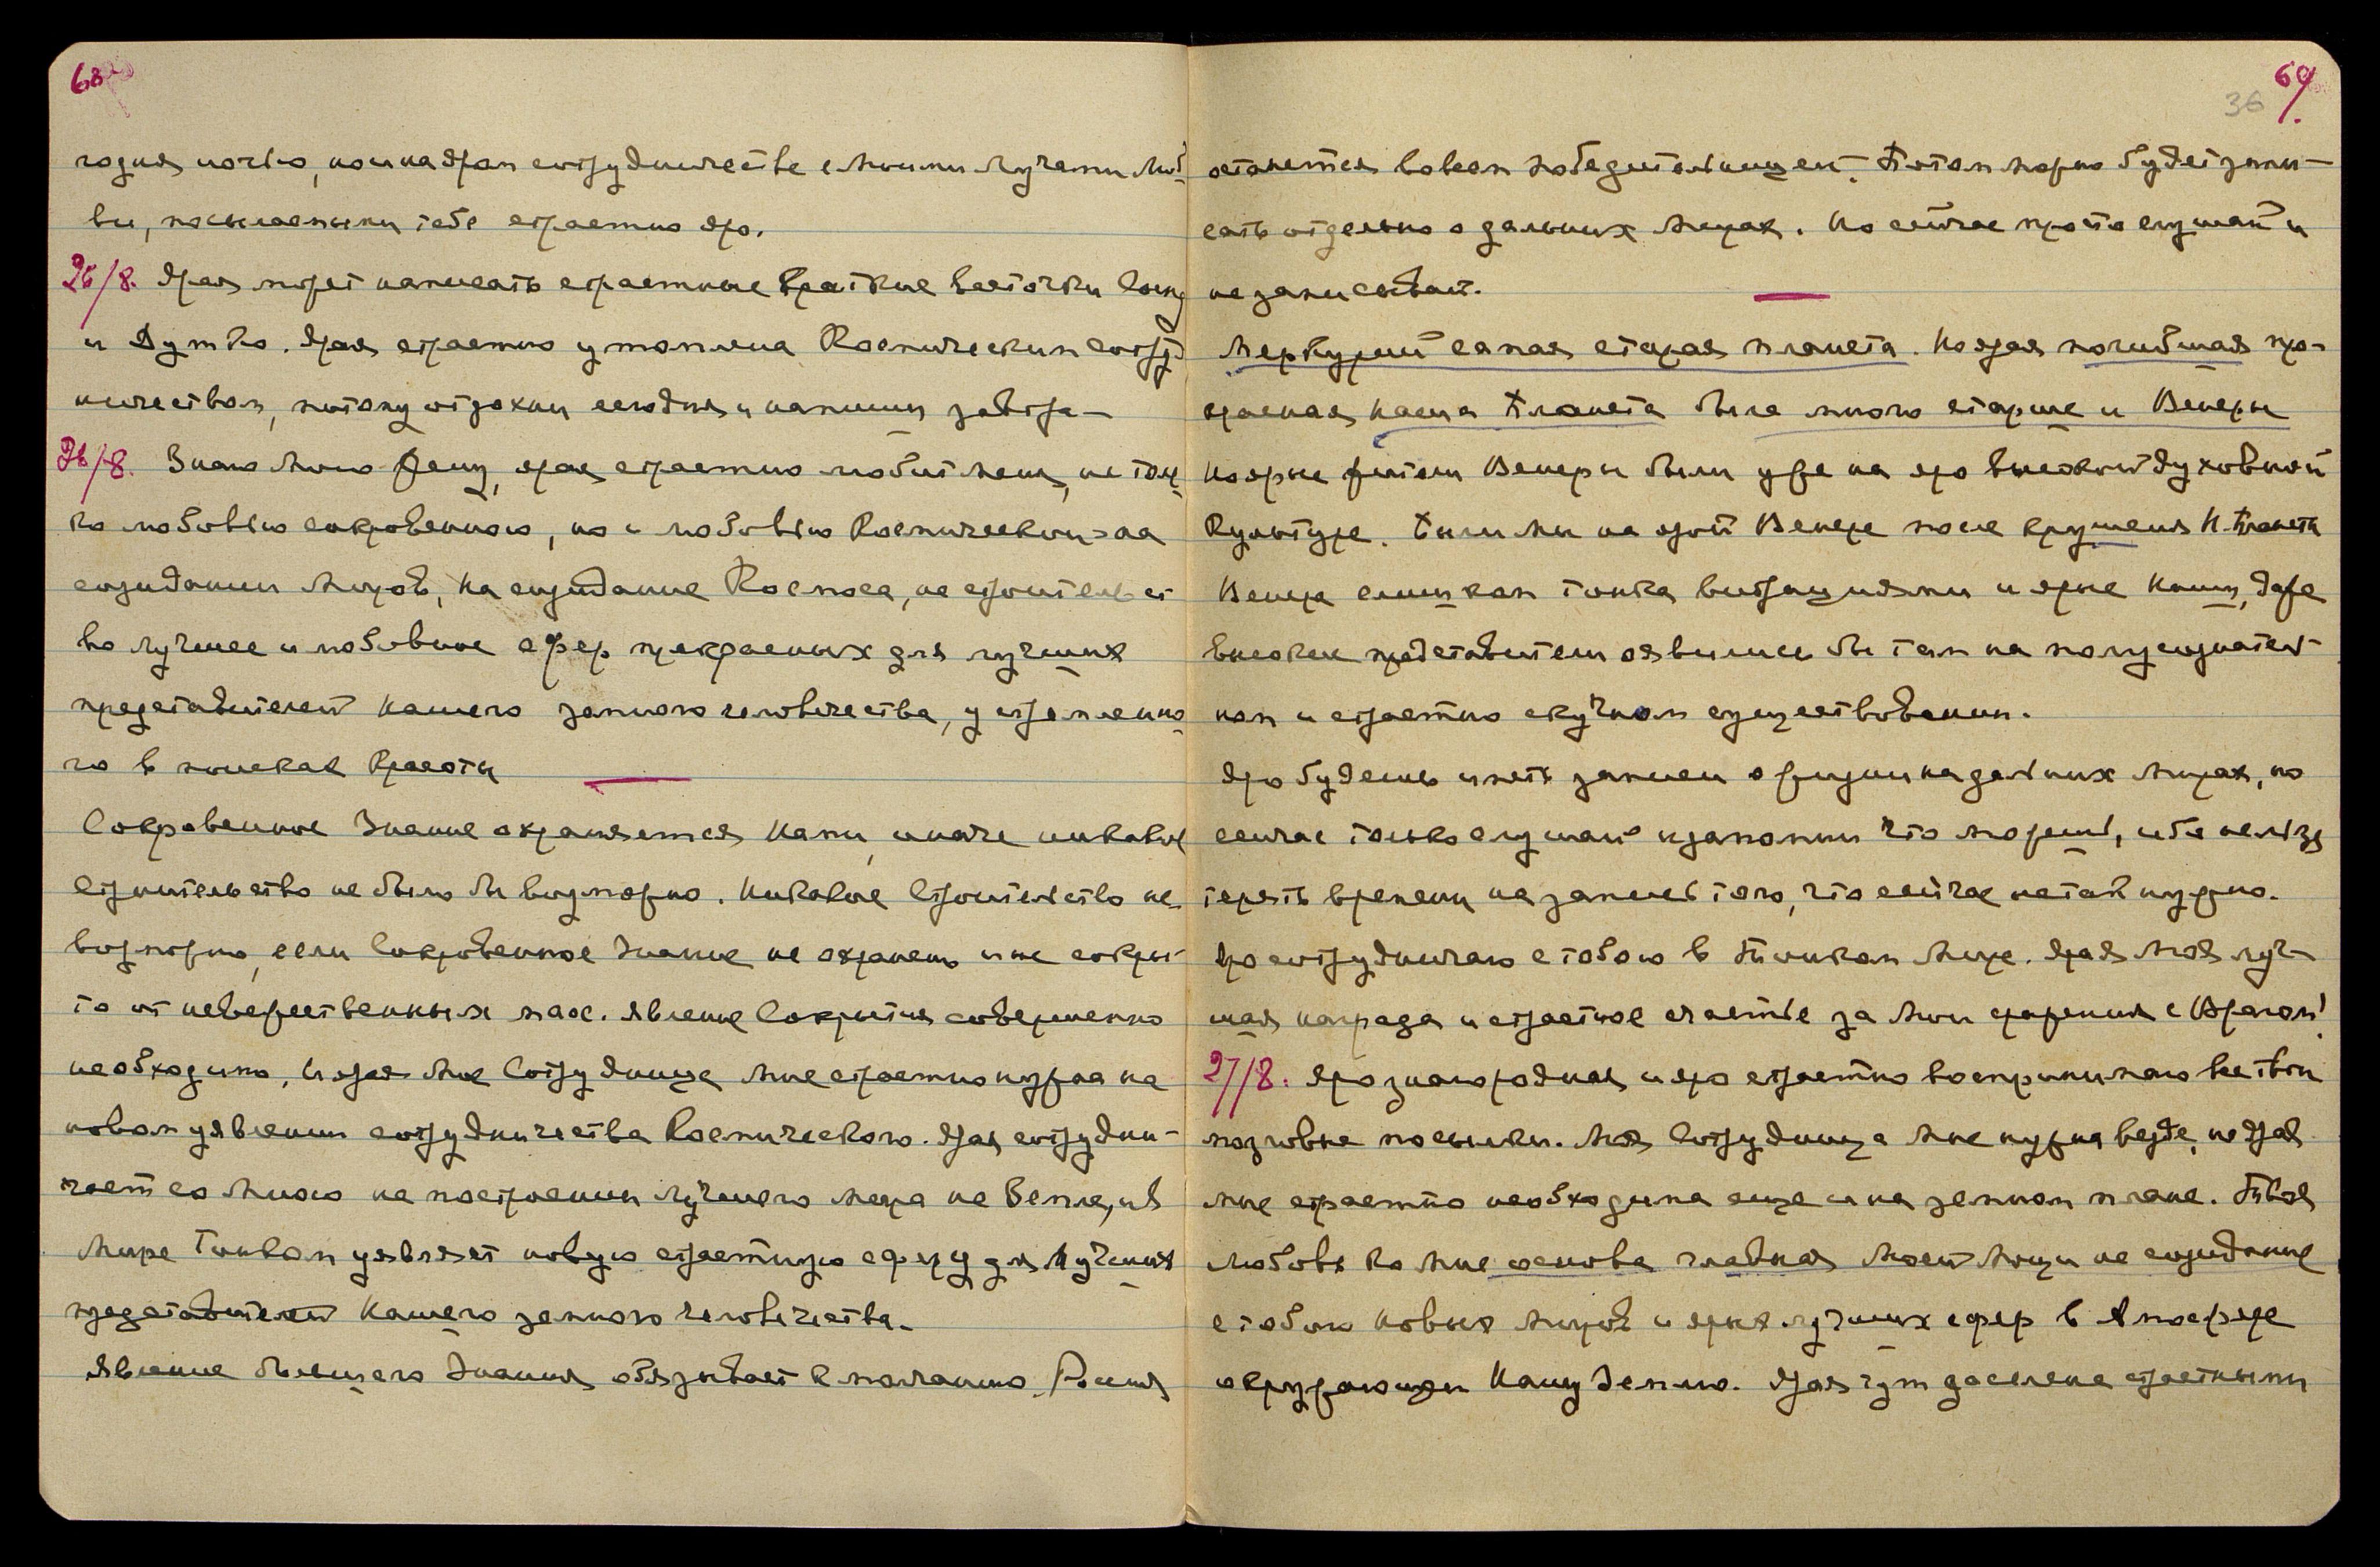 68
годня ночью, но и на яром сотрудничестве с Моими Лучами Люб-
ви, посылаемыми тебе страстно яро.
26/8. Ярая может написать страстные краткие весточки Сыну
и Дутко. Ярая страстно утомлена Космическим сотруд-
ничеством, потому отдохни сегодня и напиши завтра-
26/8. Знаю Мою Жену, ярая страстно любит Меня, не толь-
ко любовью сокровенною, но и любовью Космической на
созидании Миров, на созидание Космоса, не строительст
во лучшее и любовное сфер прекрасных для лучших
представителей нашего земного человечества, устремленно-
го в поисках Красоты
Сокровенное Знание охраняется Нами, иначе никакое
Строительство не было бы возможно. Никакое Строительство не-
возможно, если Сокровенное Знание не охранено и не сокры-
то от невежественных масс. Явление Сокрытия совершенно
необходимо, и ярая Мне Сотрудница Мне страстно нужна на
новом явлении сотрудничества Космического. Ярая сотрудни-
чает со Мною на построении лучшего мира на Земле, и в
Мире Тонком уявляет новую страстную сферу для лучших
представителей нашего земного человечества.
Явление большего Знания обязывает к молчанию. Россия
69.
36
останется во всем победительницей. Потом можно будет запи-
сать отдельно о дальних Мирах. Но сейчас просто слушай и
не записывай.
Меркурий самая старая планета. Но ярая погибшая пре-
красная наша Планета была много старше и Венеры
Но ярые жители Венеры были уже на яро высокой духовной
Культуре. Были Мы на ярой Венере после крушения Н. Планеты
Венера слишком тонка вибрациями и ярые наши, даже
высокие представители оявились бы там на полусознатель-
ном и страстно скучном существовании.
Яро будешь иметь записи о жизни на дальних мирах, но
сейчас только слушай и запомни что можешь, ибо нельзя
терять времени на запись того, что сейчас не так нужно.
Яро сотрудничаю с тобою в Тонком Мире. Ярая Моя луч-
шая награда и страстное счастье за Мои сражения с Врагом!
27/8. Яро знаю родная и яро страстно воспринимаю все твои
мозговые посылки. Моя Сотрудница Мне нужна везде, но ярая
мне страстно необходима еще и на земном плане. Твоя
любовь ко Мне основа главная Моей Мощи на созидание
с тобою новых Миров и ярых лучших сфер в Атмосфере
окружающей Нашу Землю. Ярая там заселена страстными